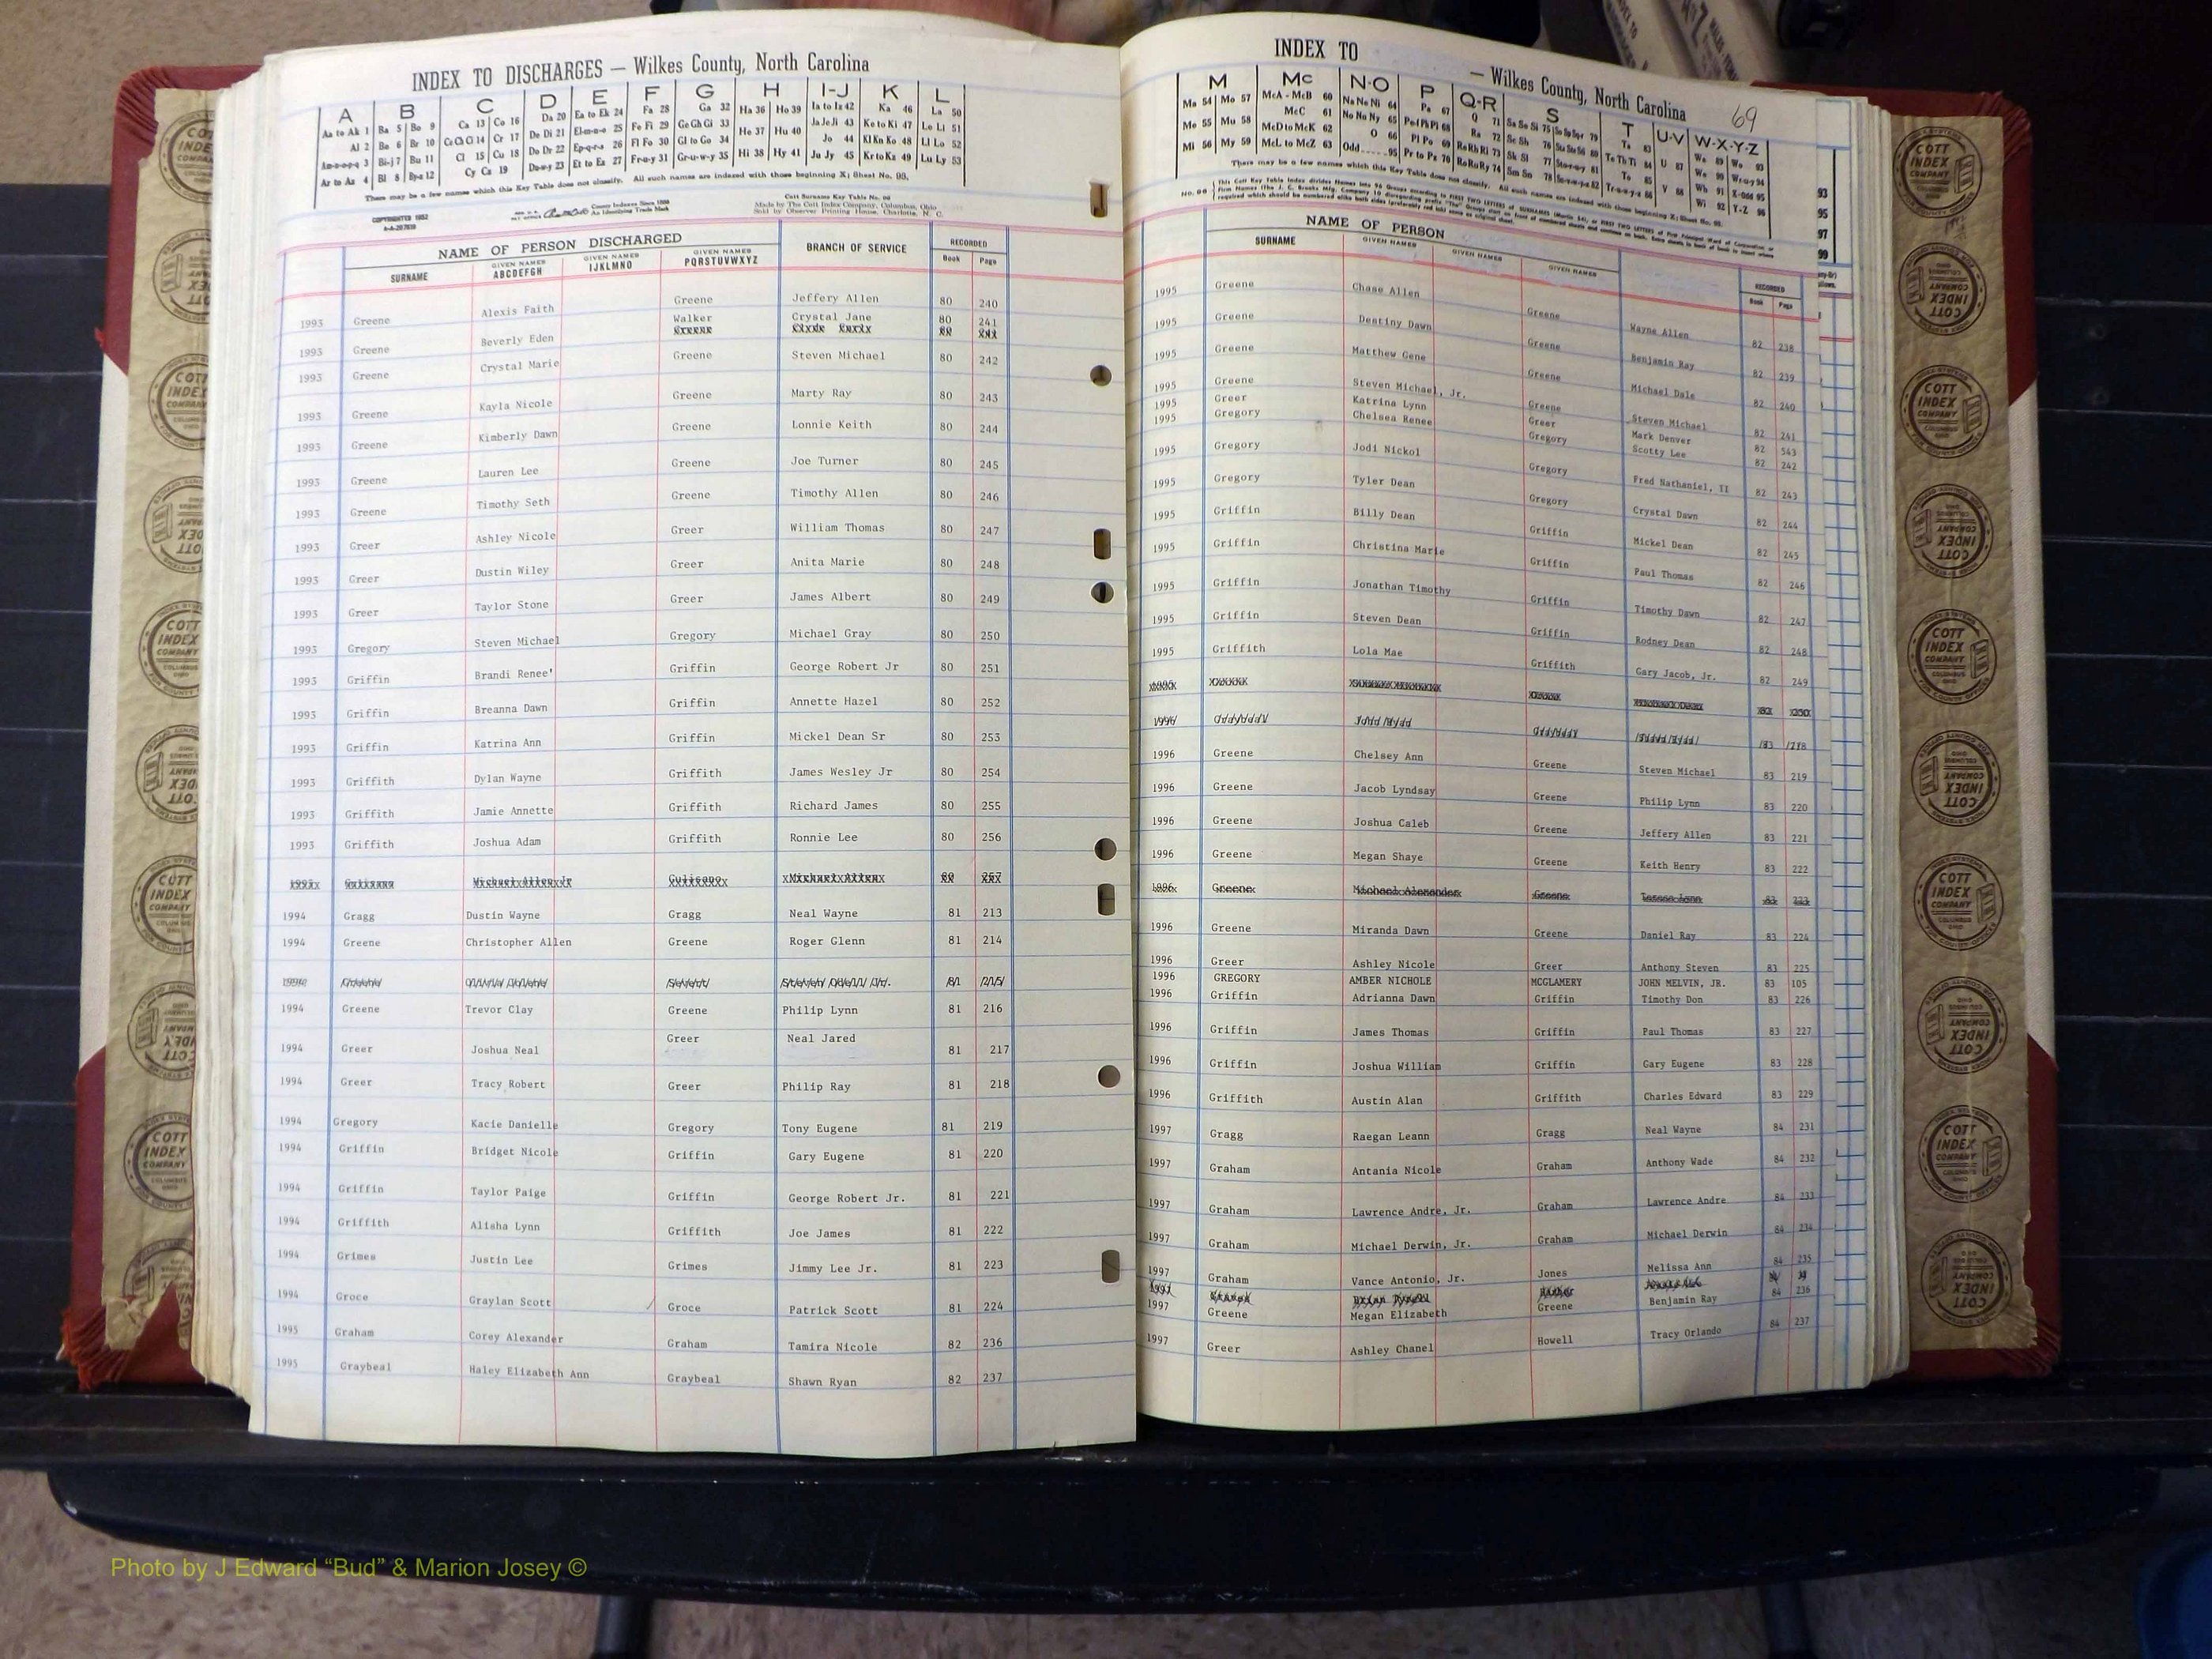 INDEX TO DISCHARGES — Wilkes County, North Carolina
A B C D E F G H I-J K L
Aa to Ak 1 Ba 5 Bo 9 Ca 13 Co 16 Da 20 Ea to Ek 24 Fa 28 Ga 32 Ha 36 Ho 39 Ia to Iz 42 Ka 46 La 50
Al 2 Be 6 Br 10 Ce Ch Ci 14 Cr 17 De Di 21 El-m-n-o 25 Fe Fi 29 Ge Gh Gi 33 He 37 Hu 40 Ja Je Ji 43 Ke to Ki 47 Le Li 51
Am-n-o-p-q 3 Bi-j 7 Bu 11 Cl 15 Cu 18 Do Dr 22 Ep-q-r-s 26 Fl Fo 30 Gl to Go 34 Hi 38 Hy 41 Jo 44 Kl Kn Ko 48 Ll Lo 52
Ar to Az 4 Bl 8 By-z 12 Cy Cz 19 Du-w-y 23 Et to Ez 27 Fr-u-y 31 Gr-u-w-y 35 Ju Jy 45 Kr to Kz 49 Lu Ly 53
There may be a few names which this Key Table does not classify. All such names are indexed with those beginning X; Sheet No. 95.
COPYRIGHTED 1952
County Indexes Since 1888
An Identifying Trade Mark
Cott Surname Key Table No. 96
Made by The Cott Index Company, Columbus, Ohio
Sold by Observer Printing House, Charlotte, N. C.
NAME OF PERSON DISCHARGED BRANCH OF SERVICE RECORDED
SURNAME GIVEN NAMES ABCDEFGH GIVEN NAMES IJKLMNO GIVEN NAMES PQRSTUVWXYZ Book Page
1993 Greene Alexis Faith Greene Jeffery Allen 80 240
1993 Greene Beverly Eden Walker Crystal Jane 80 241
1993 Greene Crystal Marie Greene Steven Michael 80 242
1993 Greene Kayla Nicole Greene Marty Ray 80 243
1993 Greene Kimberly Dawn Greene Lonnie Keith 80 244
1993 Greene Lauren Lee Greene Joe Turner 80 245
1993 Greene Timothy Seth Greene Timothy Allen 80 246
1993 Greer Ashley Nicole Greer William Thomas 80 247
1993 Greer Dustin Wiley Greer Anita Marie 80 248
1993 Greer Taylor Stone Greer James Albert 80 249
1993 Gregory Steven Michael Gregory Michael Gray 80 250
1993 Griffin Brandi Renee' Griffin George Robert Jr 80 251
1993 Griffin Breanna Dawn Griffin Annette Hazel 80 252
1993 Griffin Katrina Ann Griffin Mickel Dean Sr 80 253
1993 Griffith Dylan Wayne Griffith James Wesley Jr 80 254
1993 Griffith Jamie Annette Griffith Richard James 80 255
1993 Griffith Joshua Adam Griffith Ronnie Lee 80 256
1994 Gragg Dustin Wayne Gragg Neal Wayne 81 213
1994 Greene Christopher Allen Greene Roger Glenn 81 214
1994 Greene Trevor Clay Greene Philip Lynn 81 216
1994 Greer Joshua Neal Greer Neal Jared 81 217
1994 Greer Tracy Robert Greer Philip Ray 81 218
1994 Gregory Kacie Danielle Gregory Tony Eugene 81 219
1994 Griffin Bridget Nicole Griffin Gary Eugene 81 220
1994 Griffin Taylor Paige Griffin George Robert Jr. 81 221
1994 Griffith Alisha Lynn Griffith Joe James 81 222
1994 Grimes Justin Lee Grimes Jimmy Lee Jr. 81 223
1994 Groce Graylan Scott Groce Patrick Scott 81 224
1995 Graham Corey Alexander Graham Tamira Nicole 82 236
1995 Graybeal Haley Elizabeth Ann Graybeal Shawn Ryan 82 237
INDEX TO — Wilkes County, North Carolina
69
M Mc N-O P Q-R S T U-V W-X-Y-Z
There may be a few names which this Key Table does not classify. All such names are indexed with those beginning X; Sheet No. 95.
NAME OF PERSON RECORDED
SURNAME GIVEN NAMES GIVEN NAMES GIVEN NAMES Book Page
1995 Greene Chase Allen Greene Wayne Allen 82 238
1995 Greene Destiny Dawn Greene Benjamin Ray 82 239
1995 Greene Matthew Gene Greene Michael Dale 82 240
1995 Greene Steven Michael, Jr. Greene Steven Michael 82 241
1995 Greer Katrina Lynn Greer Mark Denver 82 543
1995 Gregory Chelsea Renee Gregory Scotty Lee 82 242
1995 Gregory Jodi Nickol Gregory Fred Nathaniel, II 82 243
1995 Gregory Tyler Dean Gregory Crystal Dawn 82 244
1995 Griffin Billy Dean Griffin Mickel Dean 82 245
1995 Griffin Christina Marie Griffin Paul Thomas 82 246
1995 Griffin Jonathan Timothy Griffin Timothy Dawn 82 247
1995 Griffin Steven Dean Griffin Rodney Dean 82 248
1995 Griffith Lola Mae Griffith Gary Jacob, Jr. 82 249
1996 Greene Chelsey Ann Greene Steven Michael 83 219
1996 Greene Jacob Lyndsay Greene Philip Lynn 83 220
1996 Greene Joshua Caleb Greene Jeffery Allen 83 221
1996 Greene Megan Shaye Greene Keith Henry 83 222
1996 Greene Michael Alexander Greene 83 223
1996 Greene Miranda Dawn Greene Daniel Ray 83 224
1996 Greer Ashley Nicole Greer Anthony Steven 83 225
1996 GREGORY AMBER NICHOLE MCGLAMERY JOHN MELVIN, JR. 83 105
1996 Griffin Adrianna Dawn Griffin Timothy Don 83 226
1996 Griffin James Thomas Griffin Paul Thomas 83 227
1996 Griffin Joshua William Griffin Gary Eugene 83 228
1996 Griffith Austin Alan Griffith Charles Edward 83 229
1997 Gragg Raegan Leann Gragg Neal Wayne 84 231
1997 Graham Antania Nicole Graham Anthony Wade 84 232
1997 Graham Lawrence Andre, Jr. Graham Lawrence Andre 84 233
1997 Graham Michael Derwin, Jr. Graham Michael Derwin 84 234
1997 Graham Vance Antonio, Jr. Jones Melissa Ann 84 235
1997 Greene Megan Elizabeth Greene Benjamin Ray 84 236
1997 Greer Ashley Chanel Howell Tracy Orlando 84 237
93
95
97
99
COTT INDEX COMPANY
Photo by J Edward “Bud” & Marion Josey ©